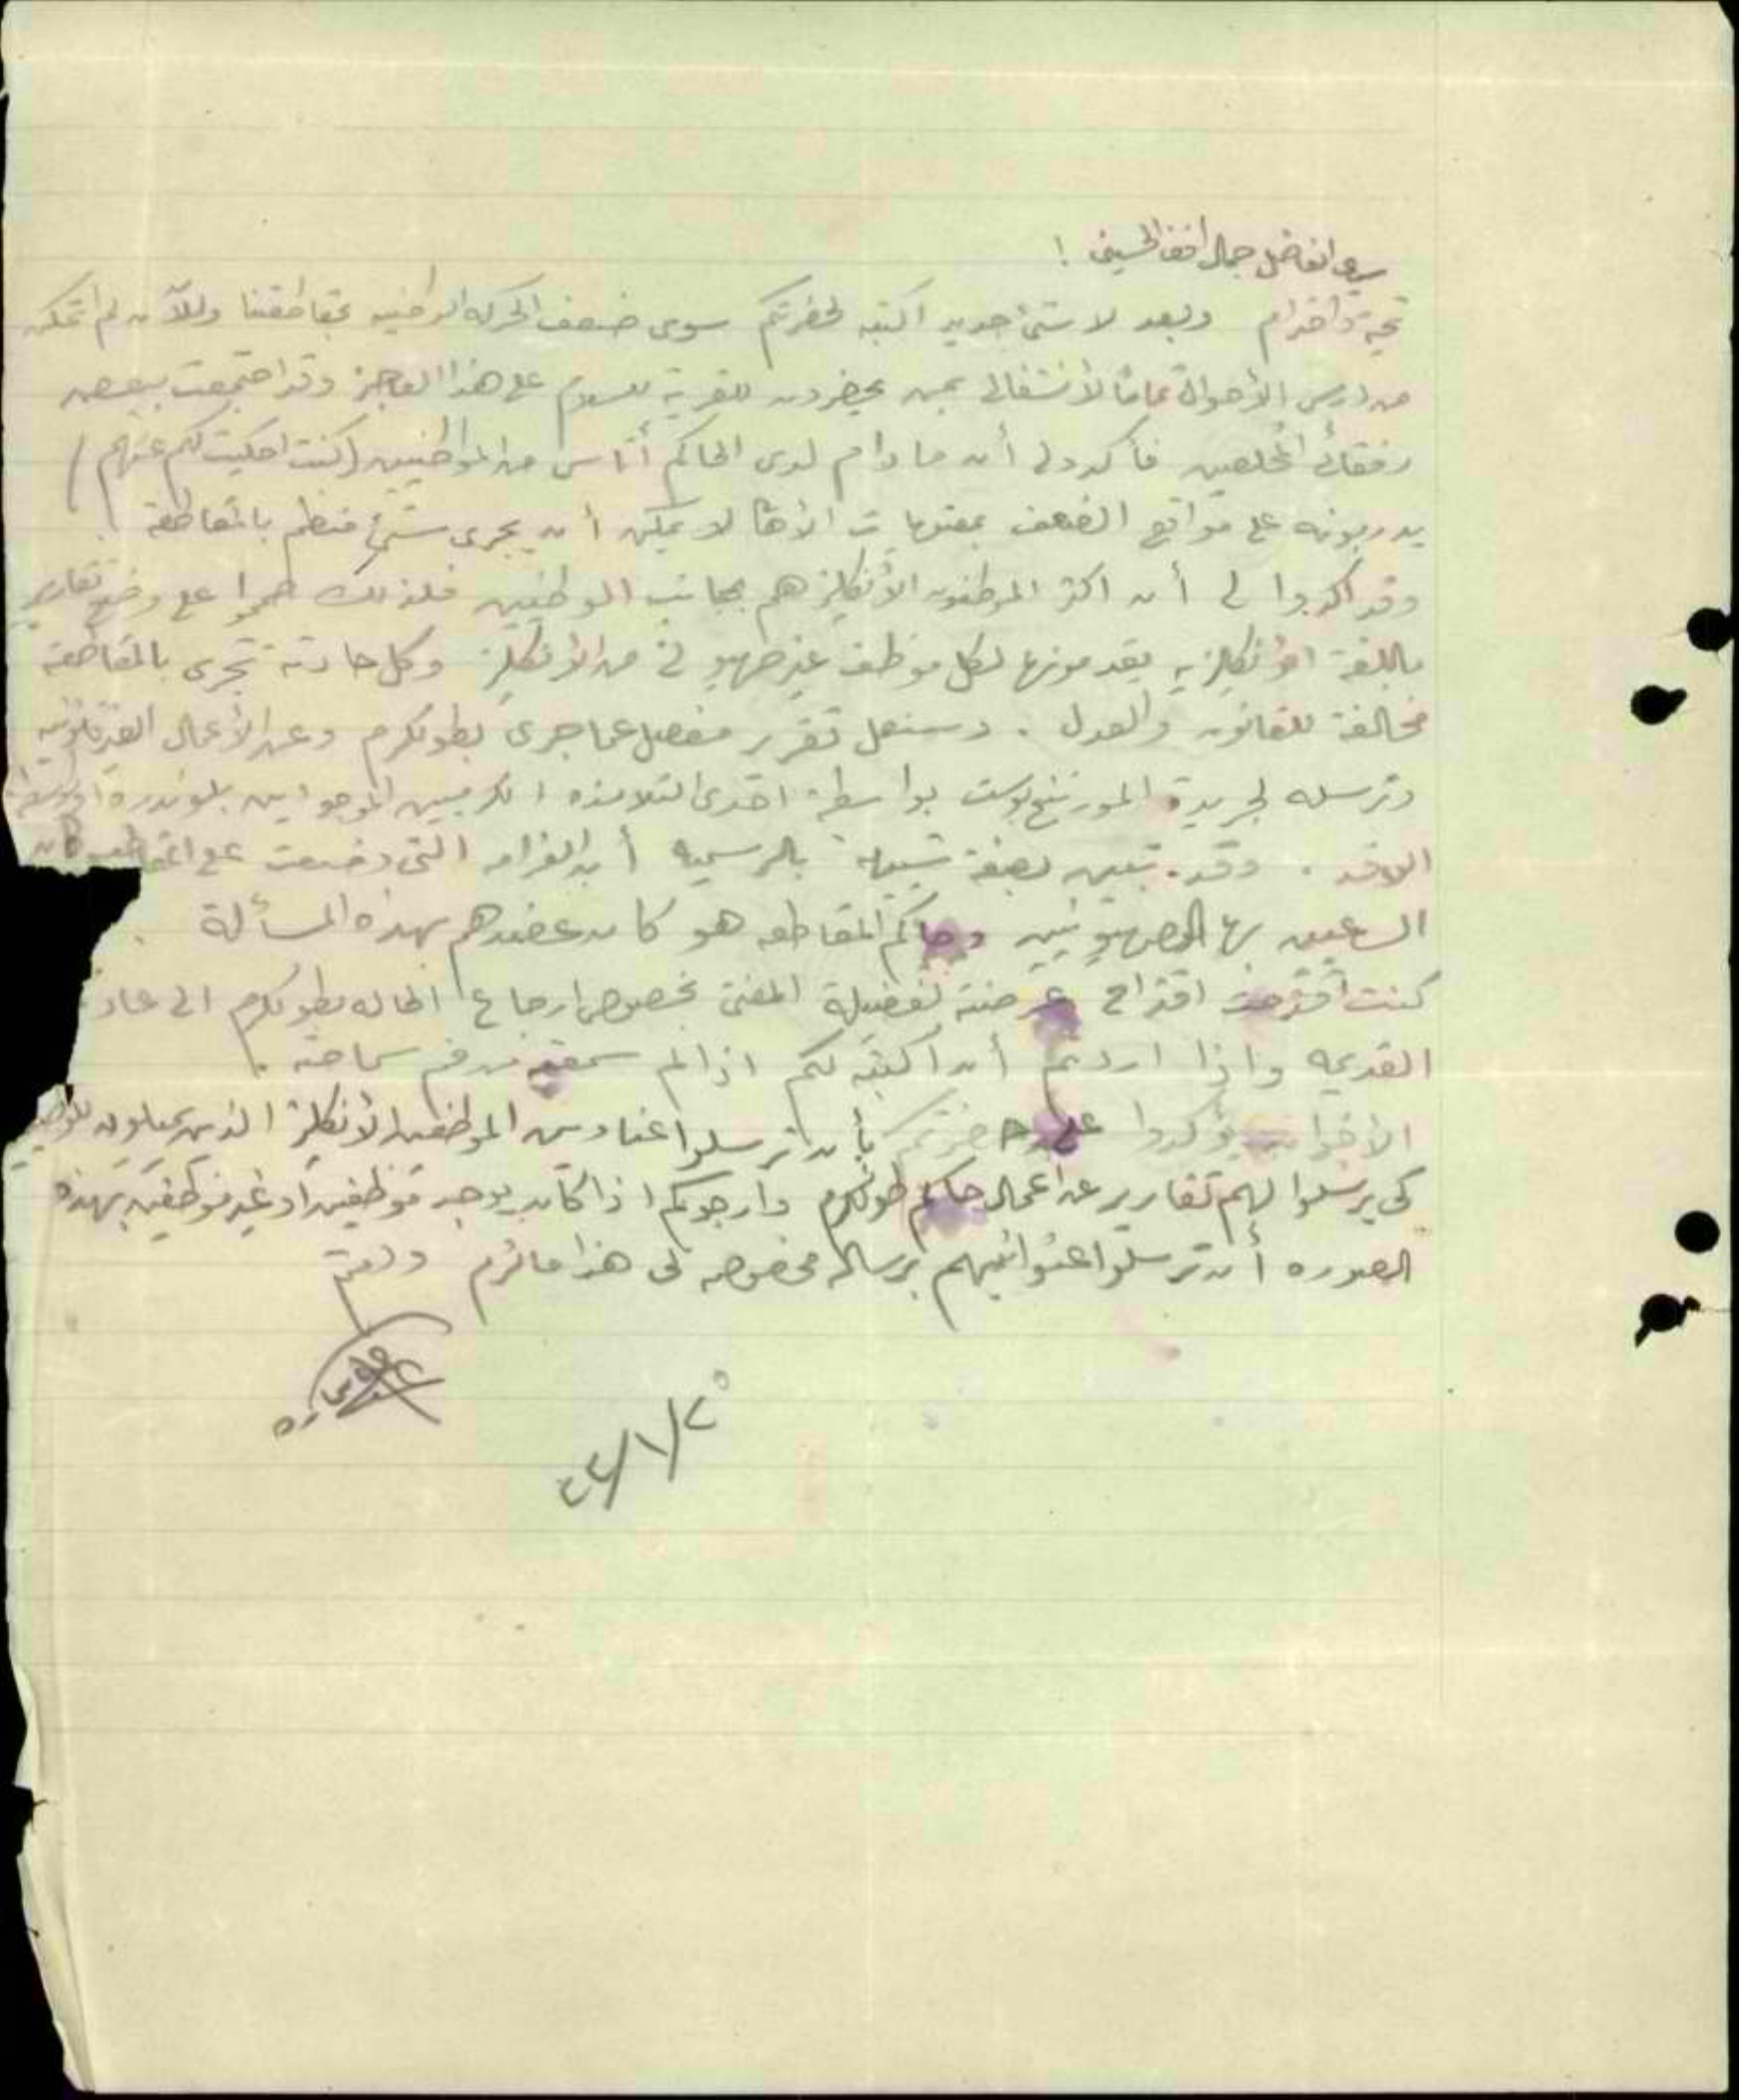 سيدي الفاضل جمال افندي الحسيني !
تحية واحترام وبعد لا شئ جديد اكتبه لحضرتكم سوى ضعف الحركة الوطنيه بمقاطعتنا وللآن لم اتمكن
من درس الأحوال تماماً لأنشغالي بمن يحضرون للقرية للسلام على هذا العاجز وقد اجتمعت ببعض
رفقائي المخلصين فأكدو لي أن ما دام لدى الحاكم أناس من المواطنيين (كنت احكيت لكم عنهم)
يدربونه على مواقع الضعف بمعنويات الأهالي لا يمكن أن يجرى شئ منظم بالمقاطعة .
وقد اكدوا لي أن اكثر الموظفون الأنكليز هم بجانب الوطنيين فلذلك صمموا على وضع تقارير
باللغة الأنكليزيه يقدمونها لكل موظف غير صهيوني من الأنكليز وكل حادثة تجرى بالمقاطعة
مخالفة للقانون والعدل . وسنعمل تقرير مفصل عما جرى بطولكرم وعن الأعمال الغير قانونيه
ونرسله لجريدة المورننغ بوست بواسطة احدى التلامذه الكرميين الموجودين بلوندره او بواسطة
الوفد . وقد تبين بصفة شبيهة بالرسميه أن الغرامه التي وضعت على المقاطعه كان
الساعيين بها الصهيونيين وحاكم المقاطعه هو كان عضدهم بهذه المسألة .
كنت أقترحت اقتراح عرضته لفضيلة المفتي بخصوص ارجاع الحاله بطولكرم الى
القديمه واذا اردتم أن اكتبه لكم اذا لم سمعتموه من فم سماحته .
الأخوان يؤكدوا على حضرتكم بأن ترسلوا عناوين الموظفين الأنكليز الذين يميلون
كي يرسلوا لهم تقارير عن اعمال حاكم طولكرم وارجوكم اذا كان يوجد موظفين او غير موظفين بهذه
الصوره أن ترسلوا عنوانيهم برساله مخصوصه لي هذا مالزم ودمتم
٢٥/١/٢٤